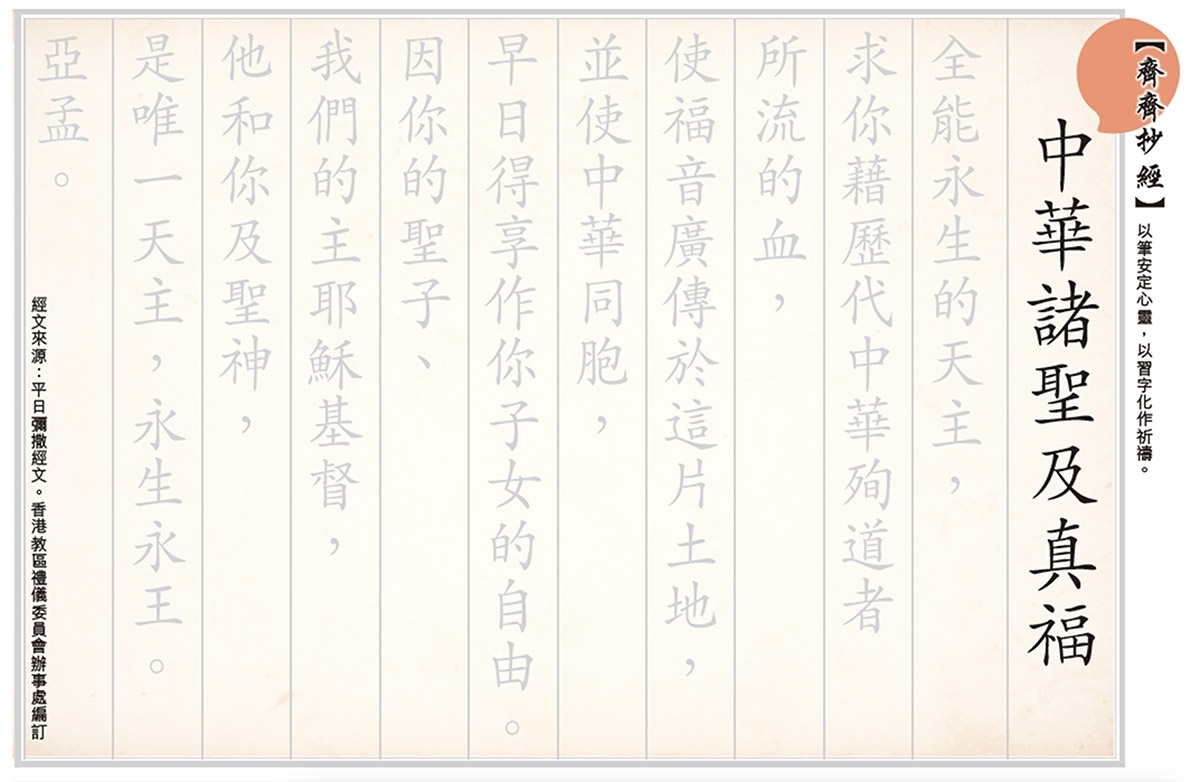 【齊齊抄經】
以筆安定心靈，以習字化作祈禱。
中華諸聖及真福
全能永生的天主，
求你藉歷代中華殉道者
所流的血，
使福音廣傳於這片土地，
並使中華同胞，
早日得享作你子女的自由。
因你的聖子、
我們的主耶穌基督，
他和你及聖神，
是唯一天主，永生永王。
亞孟。
經文來源：平日彌撒經文。香港教區禮儀委員會辦事處編訂